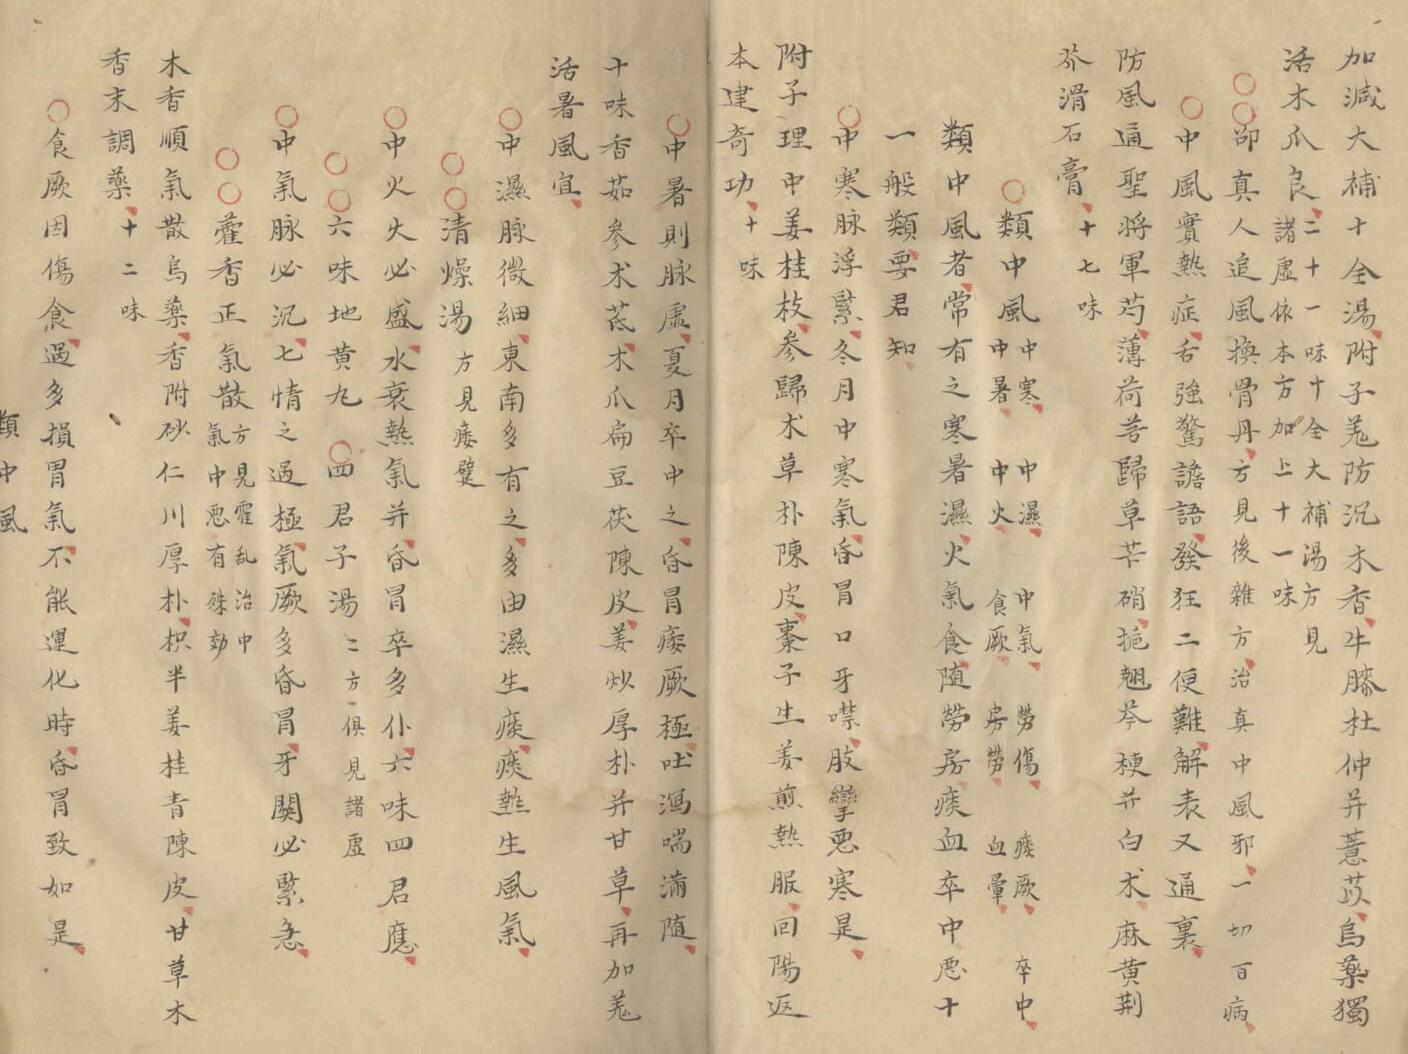 加減大補十全湯附子羗防沉木香牛膝杜仲并薏苡烏藥獨
活木爪良二十一味十全大補湯方見諸虛依本方加上十一味
卲真人追風換骨丹方見後雜方治真中風邪一切百病
中風實熱症舌強驚譫語發狂二便難解表又通裏
防風通聖將軍芍薄荷芎歸草芒硝梔翘芩梗并白术麻黄荆
芥滑石膏十七味
類中風中寒中濕中氣勞傷痰厥卒中中暑中火食厥房勞血暈
類中風者常有之寒暑濕火氣食随勞房痰血卒中悪十
一般類要君知
中寒脉浮緊冬月中寒氣昏冒口牙噤肢攣悪寒是
附子理中姜桂枝参歸术草朴陳皮棗子生姜煎熱服回陽返
本建奇功十味
中暑則脉虛夏月卒中之昏冒痿厥極吐瀉喘滿随
十味香茹參术芪木爪扁豆茯陳皮姜炒厚朴并甘草再加羗
活暑風宜
中濕脉微細東南多有之多由濕生痰痰熱生風氣
清燥湯方見痿躄
中火火必盛水衰熱氣并昏冒卒多仆六味四君應
六味地黄丸四君子湯二方俱見諸虛
中氣脉必沉七情之過極氣厥多昏冒牙關必緊急
藿香正氣散方見霍乱治中氣中悪有殊効
木香順氣散烏藥香附砂仁川厚朴枳半姜桂青陳皮甘草木
香末調藥十二味
食厥因傷食過多損胃氣不能運化時昏冒致如是
類中風